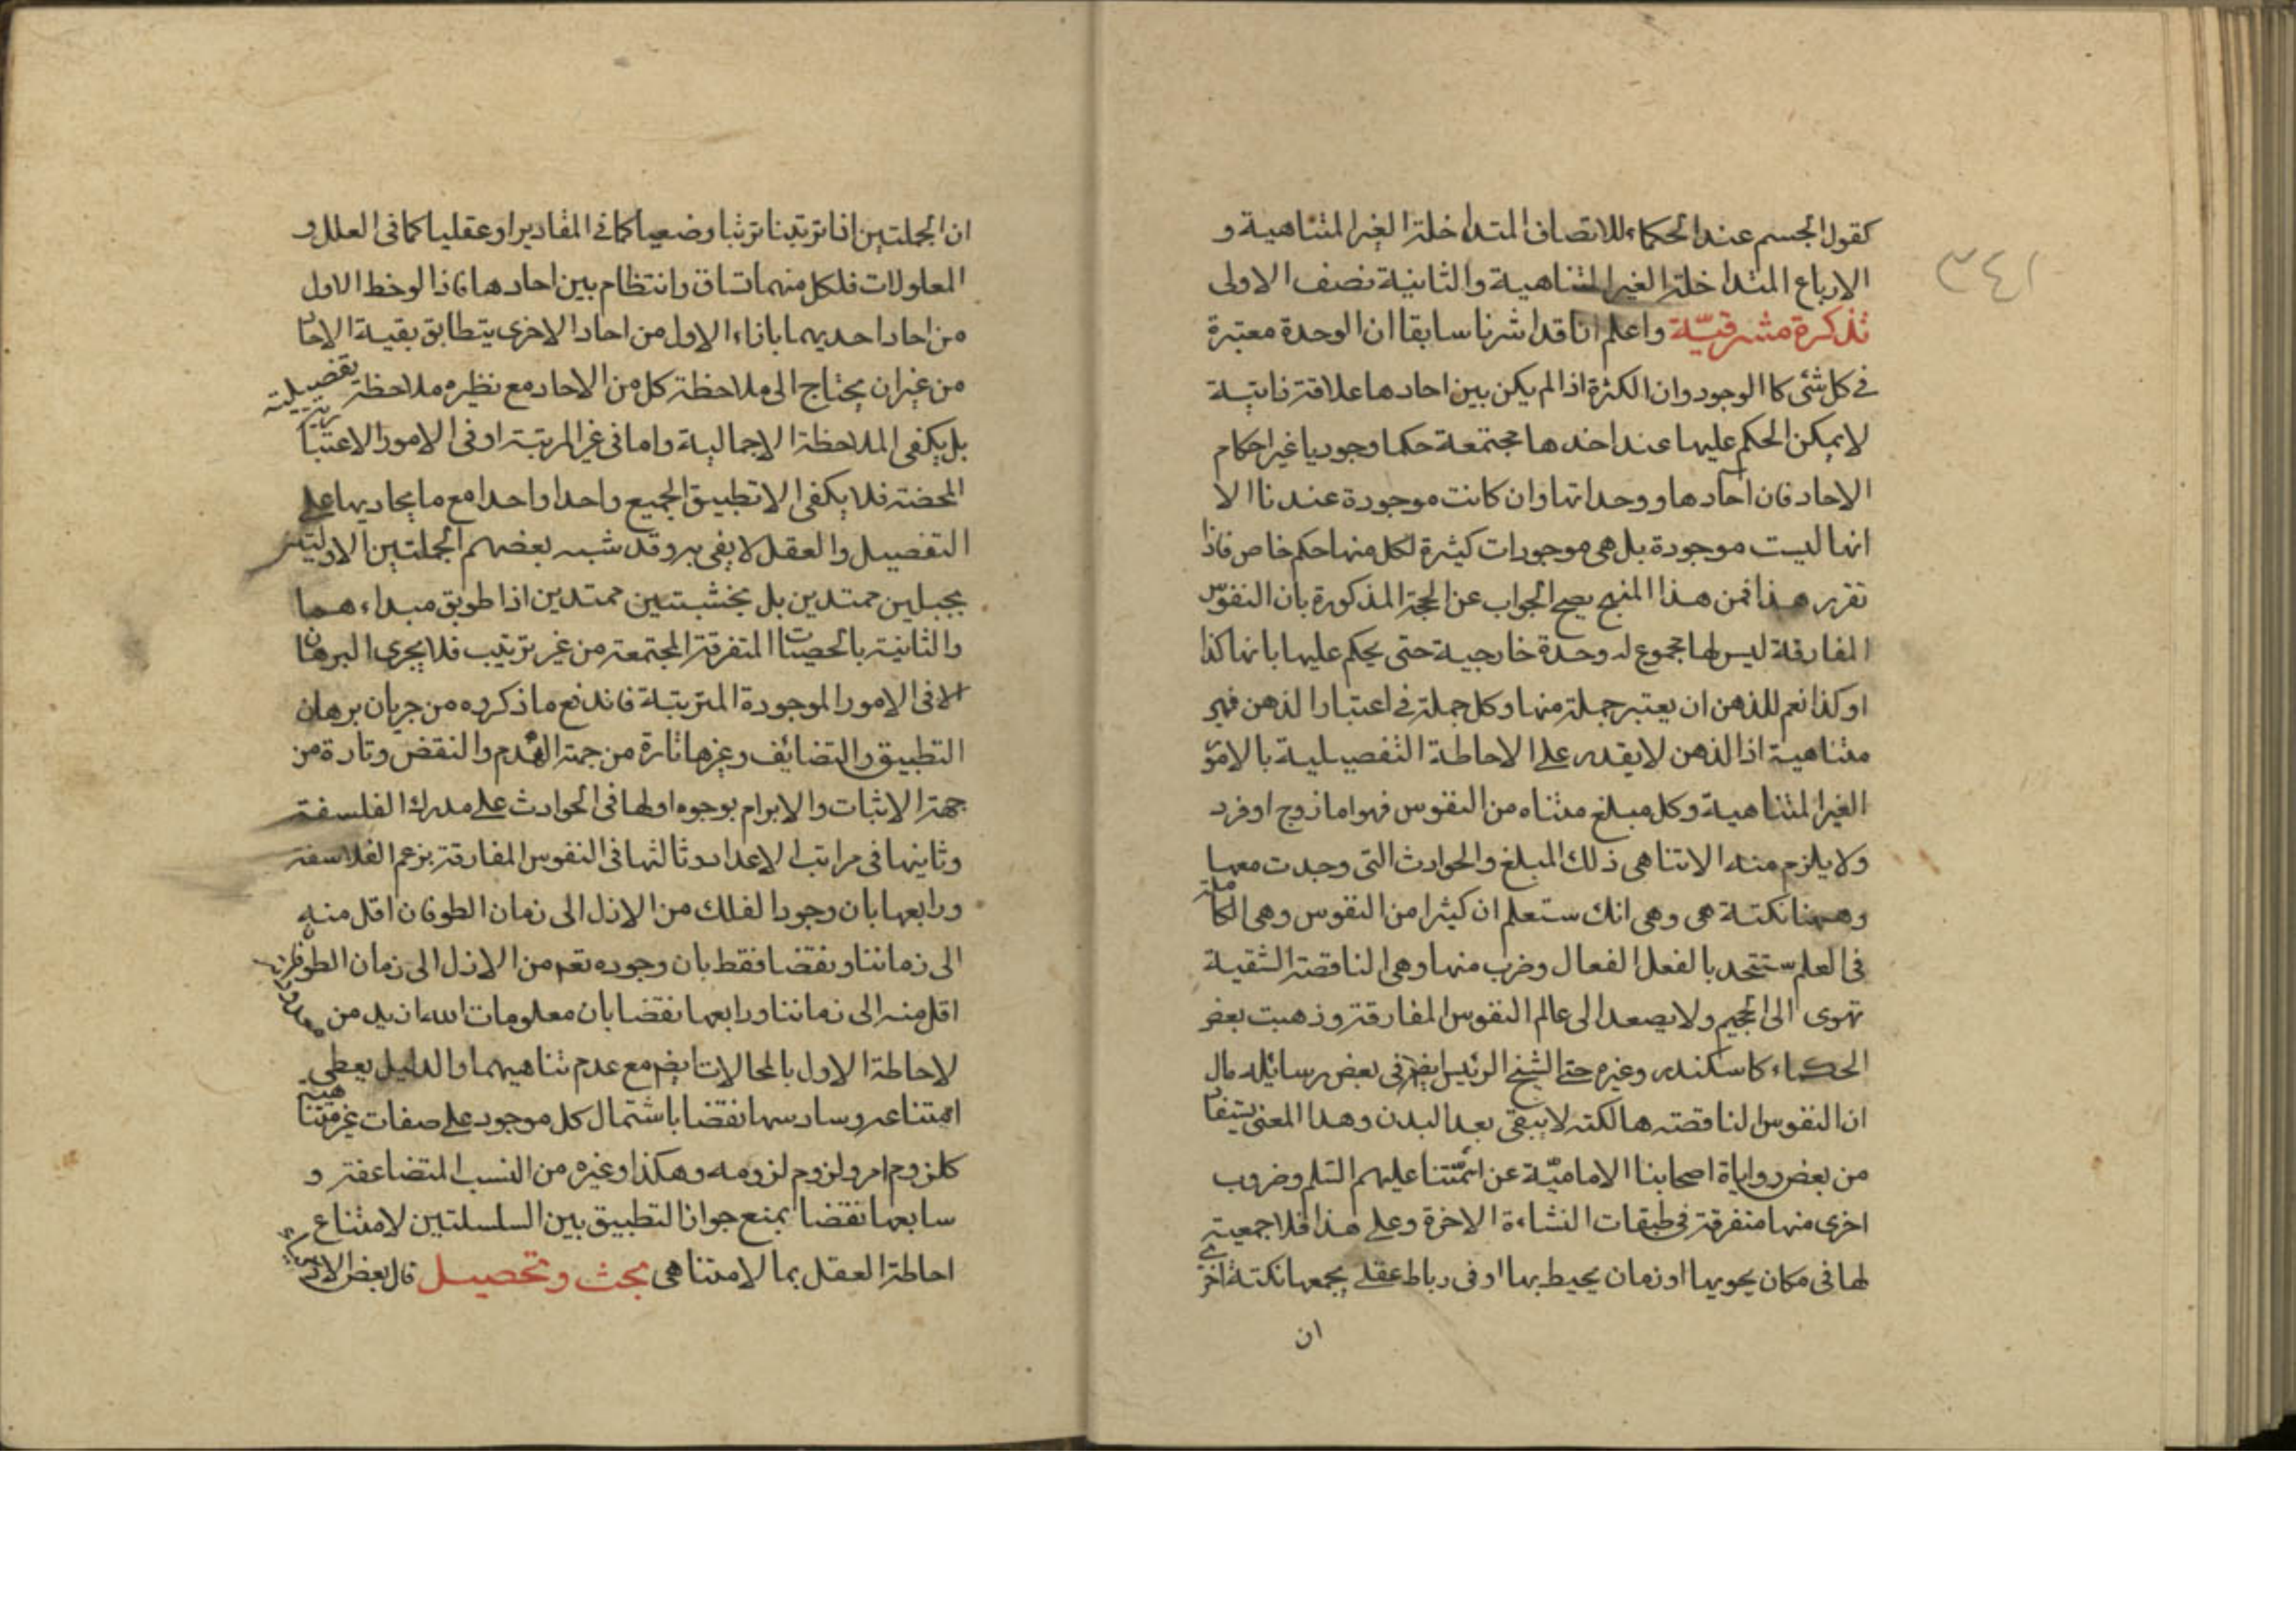 ٣٤١
كقول الجسم عند الحكماء للانصاف المتداخلة الغير المتناهية و
الارباع المتداخلة الغير المتناهية والثانية نصف الاولى
تذكرة مشرقيّة واعلم انا قد اشرنا سابقا ان الوحدة معتبرة
في كل شئ كا الوجود وان الكثرة اذا لم يكن بين احادها علاقة ذاتية
لا يمكن الحكم عليها عند اخذها مجتمعة حكما وجوديا غير احكام
الاحاد فان احادها ووحداتها وان كانت موجودة عندنا الا
انها ليست موجودة بل هى موجودات كثيرة لكل منها حكم خاص فاذا
تقرر هذا فمن هذا المنهج يصح الجواب عن الحجة المذكورة بان النفوس
المفارقة ليس لها مجموع له وحدة خارجية حتى يحكم عليها بانها كذا
او كذا نعم للذهن ان يعتبر جملة منها وكل جملة في اعتبار الذهن فهى
متناهية اذ الذهن لا يقدر على الاحاطة التفصيلية بالامور
الغير المتناهية وكل مبلغ متناه من النفوس فهو اما زوج او فرد
ولا يلزم منه الا تناهى ذلك المبلغ والحوادث التى وجدت معها
وههنا نكتة هى وهى انك ستعلم ان كثيرا من النفوس وهى الكاملة
فى العلم ستتحد بالفعل الفعال وضرب منها وهى الناقصة الشقية
تهوى الى الجحيم ولا يصعد الى عالم النفوس المفارقة وذهبت بعض
الحكماء كاسكندر وغيره حتى الشيخ الرئيس ايضا فى بعض رسائله مال
ان النفوس الناقصة هالكة لا يبقى بعد البدن وهذا المعنى يستفاد
من بعض رواياة اصحابنا الاماميّة عن ائمّتنا عليهم السّلم وضروب
اخرى منها متفرقة فى طبقات النشاءة الاخرة وعلى هذا فلا جمعية
لها فى مكان يحويها او زمان يحيط بها او فى رباط عقلى يجمعها نكتة اخرى
ان
ان الجملتين اذا ترتبتا ترتبا وضعيا كما فى المقادير او عقليا كما فى العلل و
المعاولات فلكل منهما اتساق وانتظام بين احادها فاذا لوخظ الاول
من احاد احديهما باذاء الاول من احاد الاخرى يتطابق بقية الاحاد
من غير ان يحتاج الى ملاحظة كل من الاحاد مع نظيره ملاحظة تفصيلية
بل يكفى الملاحظة الاجمالية واما فى غير المرتبة او فى الامور الاعتبارية
المحضة فلا يكفى الا تطبيق الجميع واحدا واحدا مع ما يحاديها على
التفصيل والعقل لا يفى به وقد شبه بعضهم الجملتين الاوليتين
بجبلين ممتدين بل بخشبتين ممتدين اذا طوبق مبداء هما
والثانية بالحصيات المتفرقة المجتمعة من غير ترتيب فلا يجرى البرهان
الا فى الامور الموجودة المترتبة فاندفع ما ذكروه من جريان برهان
التطبيق والتضائف وغيرها تارة من جهة الهدم والنقض وتارة من
جهة الاثبات والابرام بوجوه اولها فى الحوادث على مدرك الفلسفة
وثانيها فى مراتب الاعداد وثالثها فى النفوس المفارقة بزعم الفلاسفة
ورابعها بان وجود الفلك من الازل الى زمان الطوفان اقل منه
الى زماننا ونقضا فقط بان وجوده تعم من الازل الى زمان الطوفان
اقل منه الى زماننا ورابعها نقضا بان معلومات الله ازيد من مقدوراته
لاحاطة الاول بالمحالات ايضم مع عدم تناهيهما والدليل يعطى
امتناعه وسادسها نقضا باشتمال كل موجود على صفات غير متناهية
كلزوم امر ولزوم لزومه وهكذا وغيره من النسب المتضاعفة و
سابعها نقضا بمنع جواز التطبيق بين السلسلتين لامتناع
احاطة العقل بما لا متناهى بحث وتحصيل قال بعض